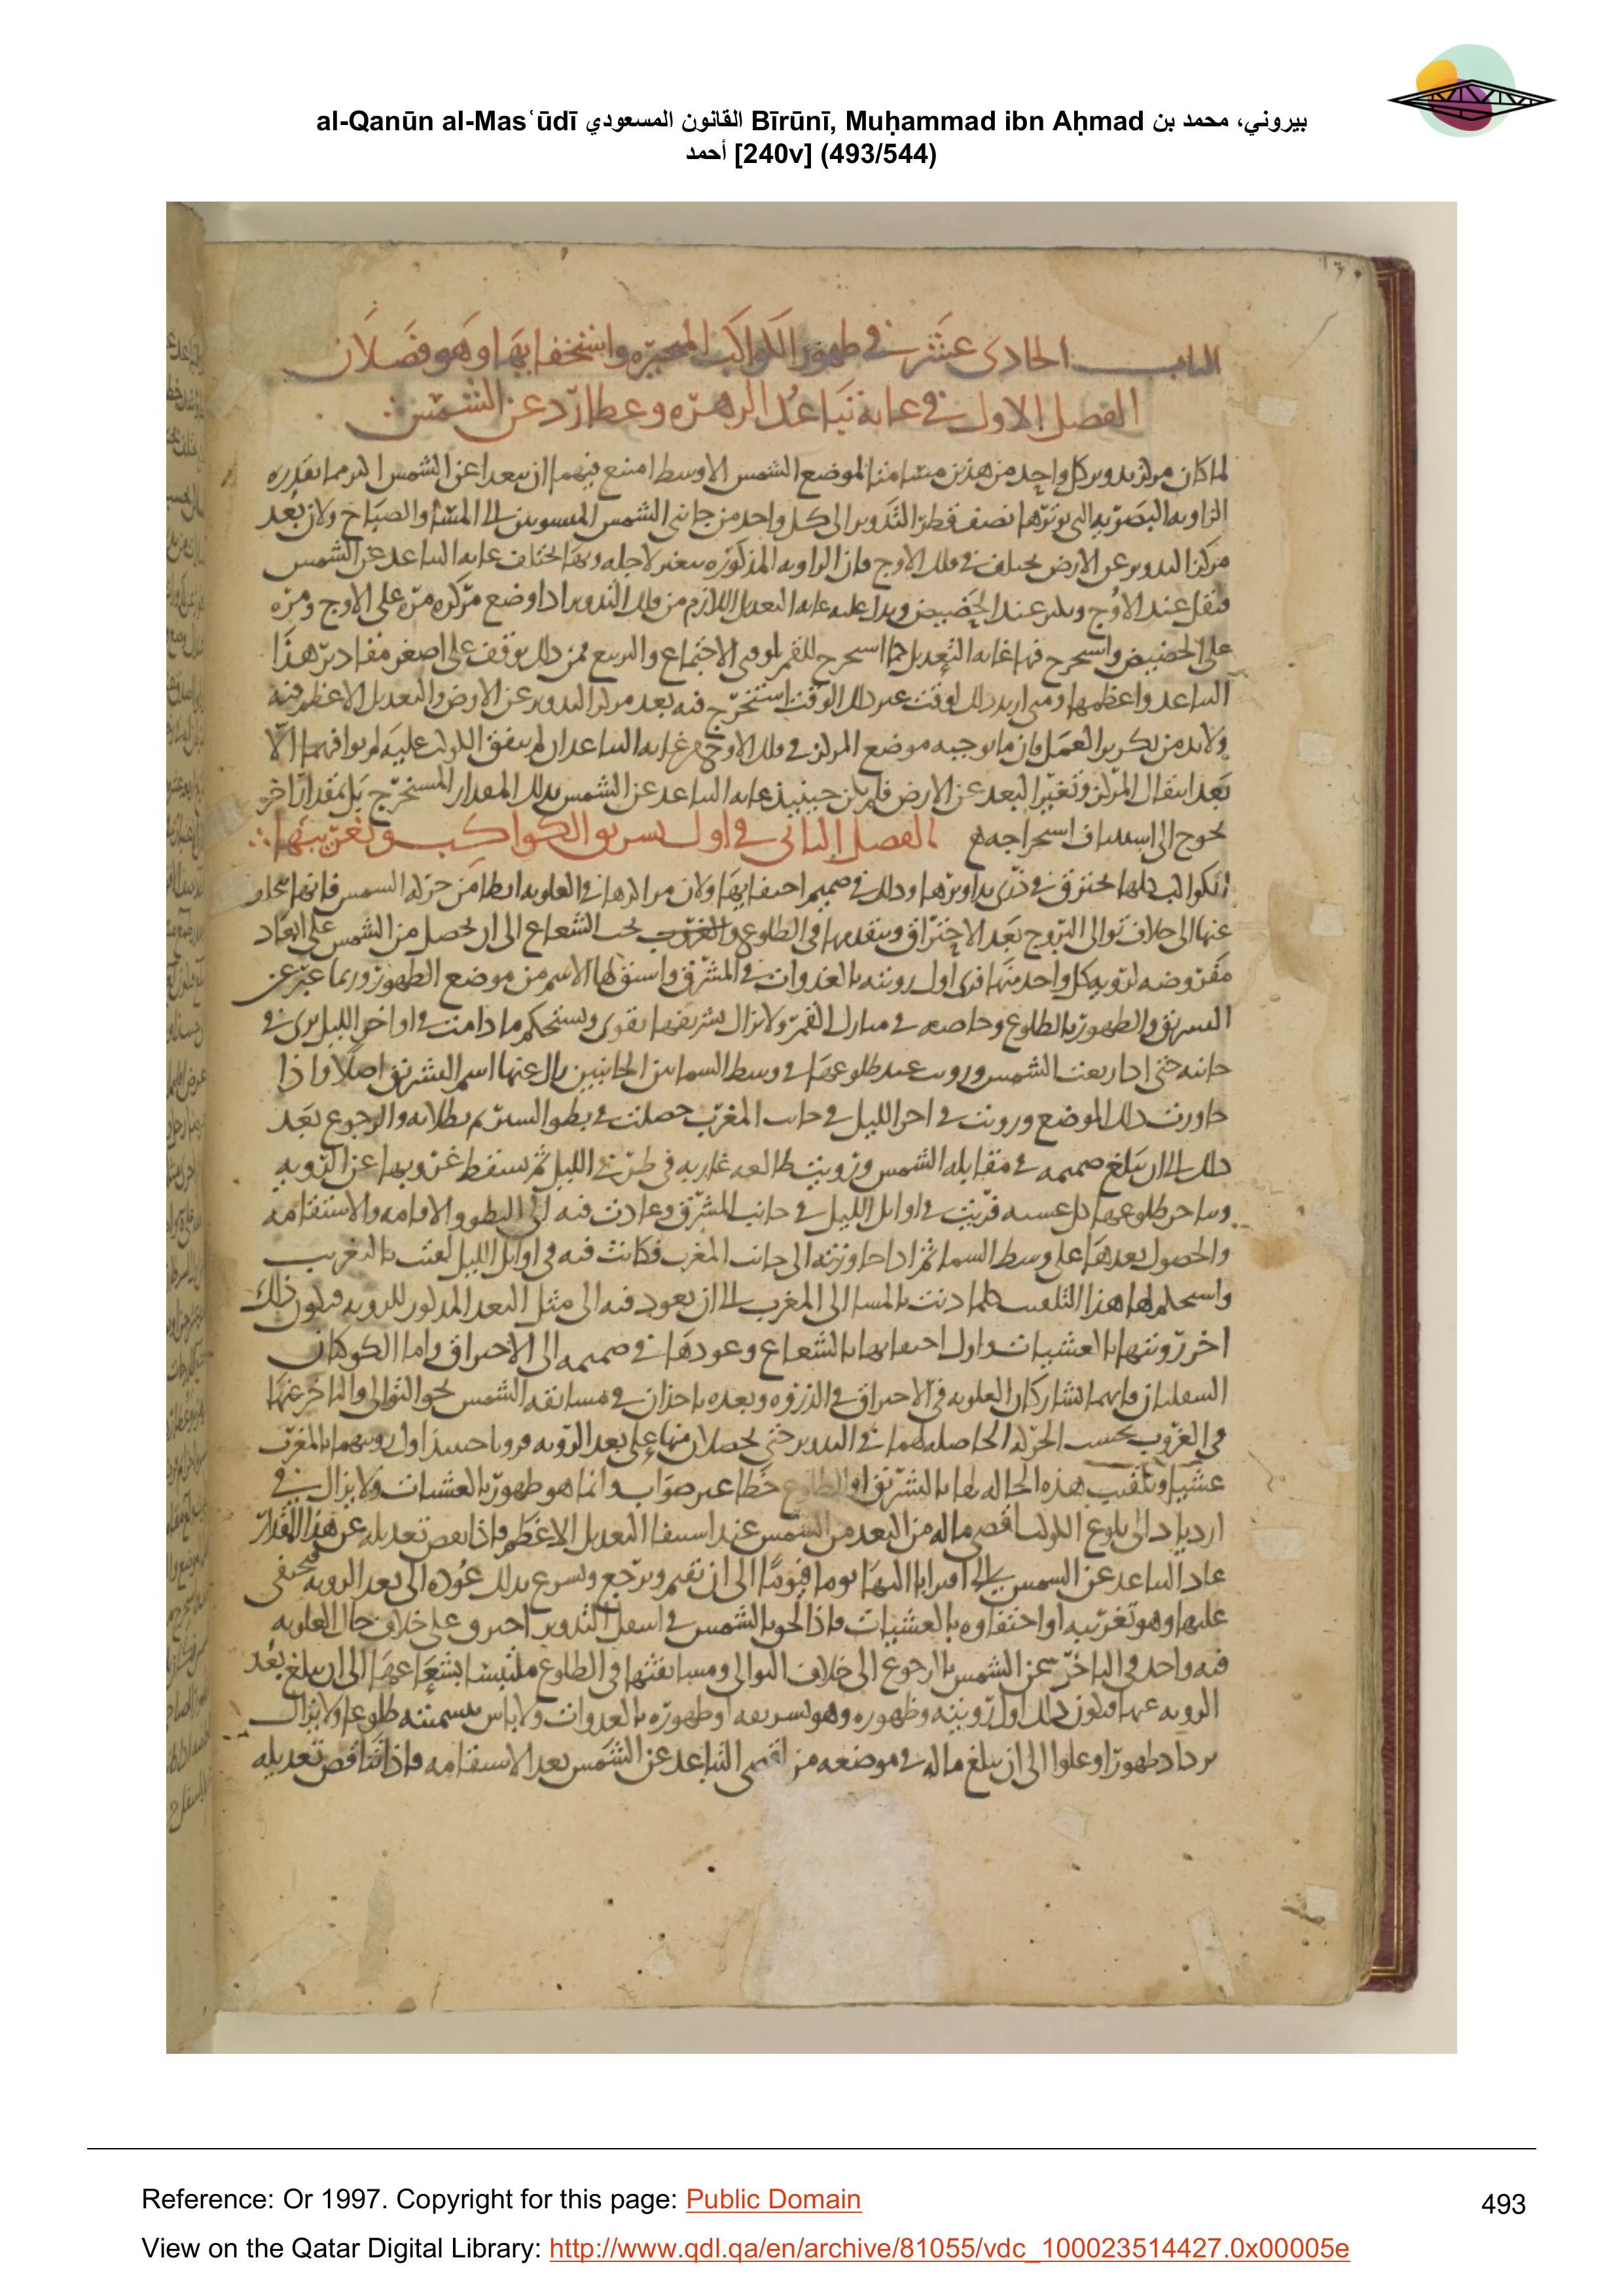 al-Qanūn al-Masʿūdī القانون المسعودي Bīrūnī, Muḥammad ibn Aḥmad بيروني، محمد بن
أحمد [240v] (493/544)
الباب الحادى عشر فى ظهور الكواكب المتحيره واستخفايها وهو فصلان
الفصل الاول فى غايه تباعد الزهره وعطارد عن الشمس
لما كان مركز تدوير كل واحد من هذين مسامتا لموضع الشمس الاوسط امتنع فيهما ان يبعدا عن الشمس اكثر مما تقدره
الزاويه البصريه التى يوترها نصف قطر التدوير الى كل واحد من جانبى الشمس المنسوبين الى المسا والصباح ولان بعد
مركز التدوير عن الارض يختلف فى فلك الاوج فان الزاويه المذكوره يتغير لاجله وبها يختلف غايه التباعد عن الشمس
فتقل عند الاوج وتكثر عند الحضيض ويدل عليه غايه التعديل اللازم من فلك التدوير اذا وضع مركزه مره على الاوج ومره
على الحضيض واستخرج فيها غايه التعديل كما استخرج للقمر لوقتى الاجتماع والتربيع فمن ذلك يوقف على اصغر مقادير هذا
التباعد واعظمها ومتى اريد ذلك لوقت غير ذلك الوقت استخرج فيه بعد مركز التدوير عن الارض والتعديل الاعظم فيه
ولابد من تكرير العمل فان ما يوجبه موضع المركز فى فلك الاوج من غايه التباعد ان لم يتفق الكوكب عليه لم يوافهما الا
بعد انتقال المركز وتغير البعد عن الارض فلم يكن حينيذ غايه التباعد عن الشمس بذلك المقدار المستخرج بل بمقدار اخر
يحوج الى استيناف استخراجه الفصل الثانى فى اول تشريق الكواكب وتغريبها
الكواكب كلها تحترق فى ذرى تداويرها وذلك فى صميم اختفايها ولان مراكزها فى العلويه ابطا من حركه الشمس فانها تتخلف
عنها الى خلاف توالى البروج بعد الاحتراق ويتقدمها فى الطلوع والغروب تحت الشعاع الى ان يحصل من الشمس على ابعاد
مفروضه لرويه كل واحد منها فترى اول رويته بالغدوات فى المشرق واشتق لها الاسم من موضع الظهور وربما عبر عن
التشريق والظهور بالطلوع وخاصه فى منازل القمر ولا يزال تشريقها يقوى ويستحكم ما دامت فى اواخر الليل يرى فى
جانبه حتى اذا ربعت الشمس ورويت عند طلوعها فى وسط السما بين الجانبين زال عنها اسم التشريق اصلا واذا
جاورت ذلك الموضع ورويت فى اخر الليل فى جانب المغرب حصلت فى بطو السير ثم بطلانه والرجوع بعد
ذلك الى ان يبلغ صميمه فى مقابله الشمس ورويت طالعه غاربه فى طرفى الليل ثم سقط غروبها عن الرويه
وتاخر طلوعها كل عشيه فريت فى اوايل الليل فى جانب المشرق وعادت فيه الى البطو والاقامه والاستقامه
والحصول بعدها على وسط السما ثم اذا جاوزته الى جانب المغرب فكانت فيه فى اوايل الليل لقبت بالتغريب
واستحكم لها هذا التلقيب كلما دنت بالمسا الى المغرب الى ان يعود فيه الى مثل البعد المذكور للرويه فيكون ذلك
اخر رويتها بالعشيات واول اختفايها بالشعاع وعودها فى صميمه الى الاحتراق واما الكوكبان
السفليان فانهما يشاركان العلويه فى الاحتراق فى الذروه وبعده ياخذان فى مسابقه الشمس نحو التوالى والتاخر عنها
فى الغروب بحسب الحركه الحاصله لهما فى التدوير حتى يحصلان منها على بعد الرويه فرويا حينيذ اول رويتهما بالمغرب
عشيا وتلقيب هذه الحاله لها بالتشريق او الطلوع خطا غير صواب وانما هو ظهور بالعشيات ولا يزال فى
ازدياد الى بلوغ الكوكب اقصى ماله من البعد من الشمس عند استيفا التعديل الاعظم فاذا نقص تعديله عن هذا المقدار
عاد التباعد عن الشمس الى اقترابا اليها يوما فيوما الى ان تقيم ويرجع ويسرع بذلك عوده الى بعد الرويه فيختفى
عليها وهو تغريبه او اختفاوه بالعشيات فاذا لحق بالشمس فى اسفل التدوير احترق وعلى خلاف حال العلويه
فيه واحد فى التاخر عن الشمس بالرجوع الى خلاف التوالى ومسابقتها فى الطلوع ملتبسا بشعاعها الى ان يبلغ بعد
الرويه عنها فيكون ذلك اول رويته وظهوره وهو تشريقه او ظهوره بالغدوات ولا باس بتسميته طلوعا ولا يزال
يزداد ظهورا وعلوا الى ان يبلغ ماله فى موضعه من اقصى التباعد عن الشمس بعد الاستقامه فاذا تناقص تعديله
Reference: Or 1997. Copyright for this page: Public Domain
493
View on the Qatar Digital Library: http://www.qdl.qa/en/archive/81055/vdc_100023514427.0x00005e